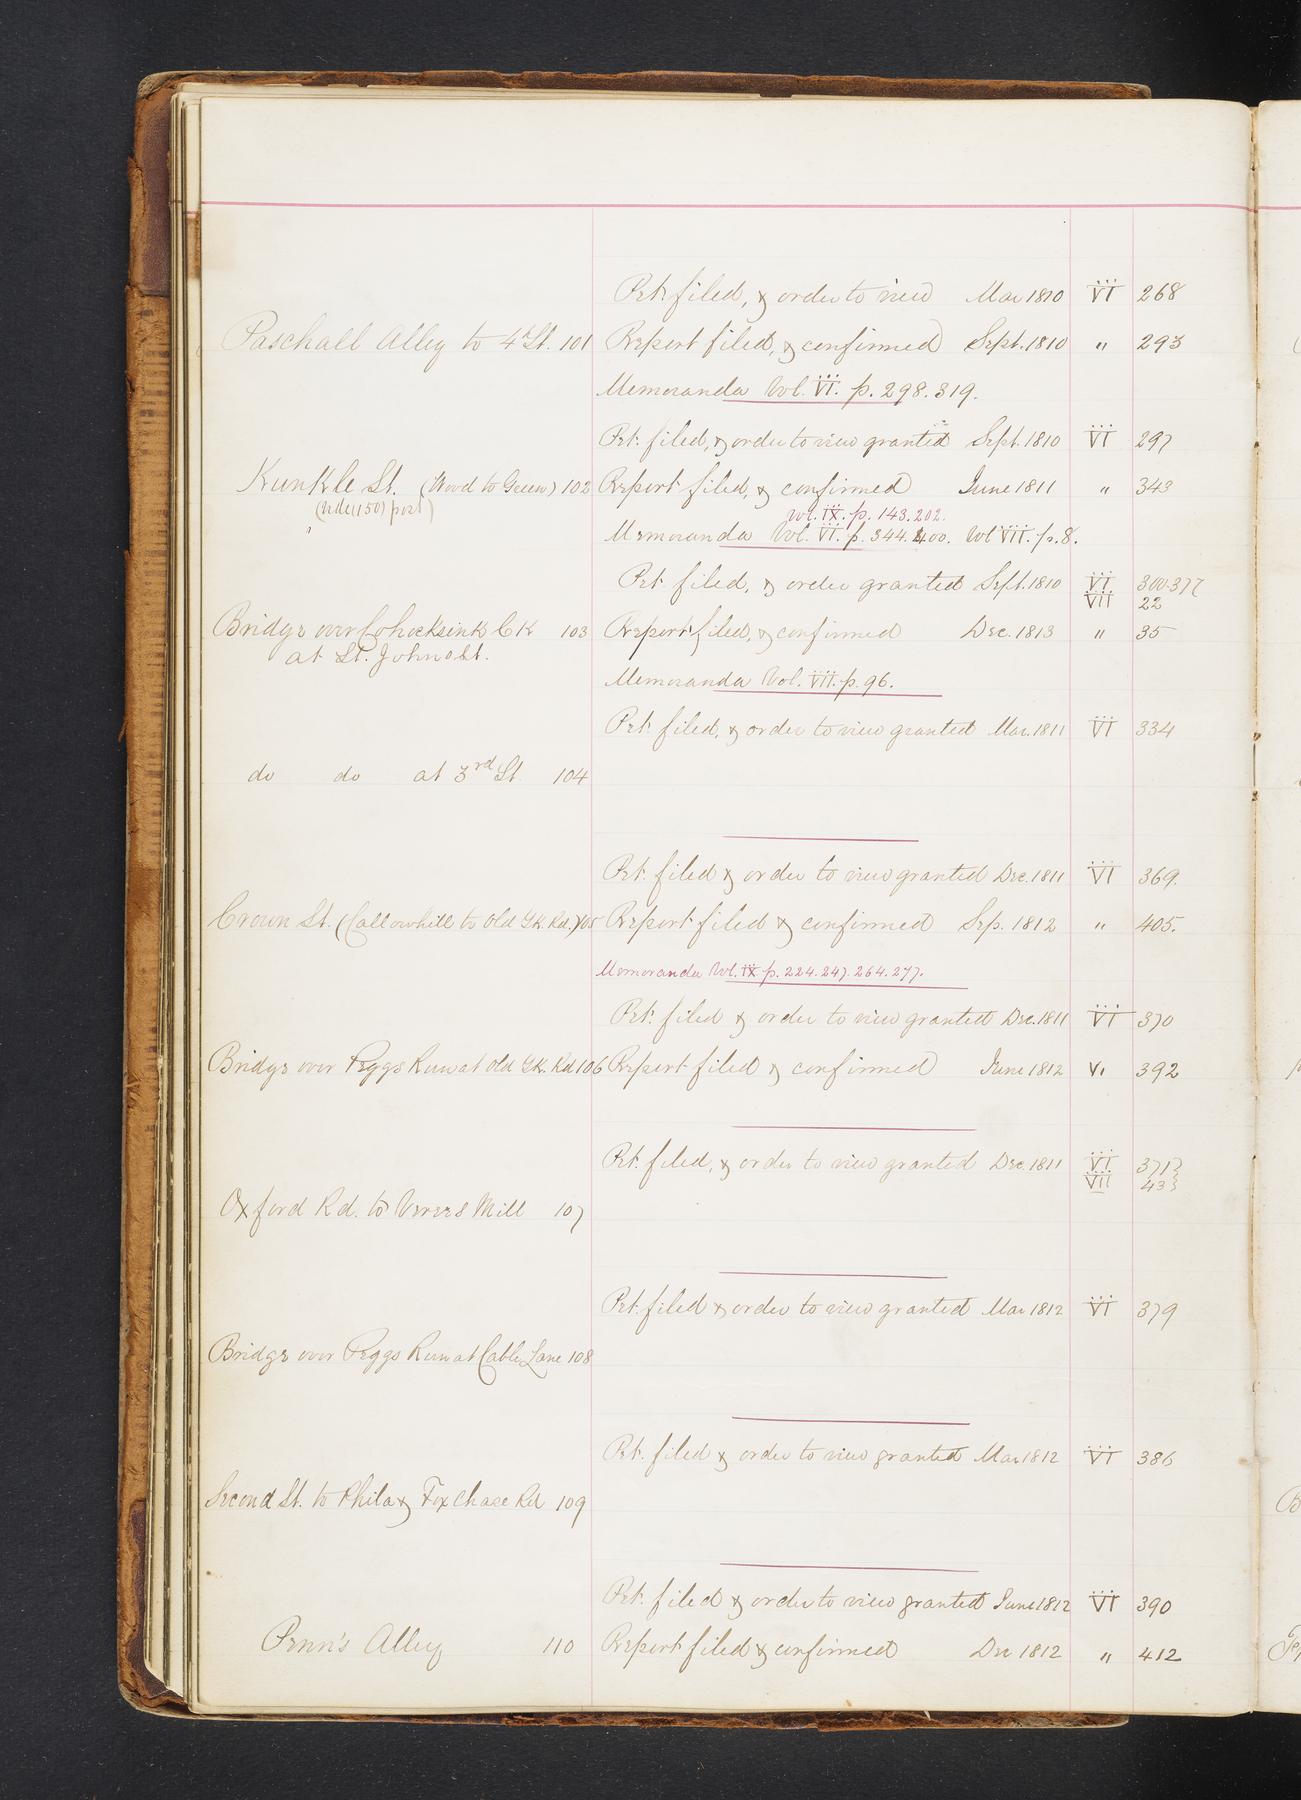 Pet. filed, & order to view Mar 1810 VI 268
Paschall Alley to 4th St. 101 Report filed, & confirmed Sept. 1810 " 293
Memoranda Vol. VI. p. 298. 319.
Pet. filed, & order to view granted Sept. 1810 VI 297
Kunkle St. (Wood to Green) 102 Report filed, & confirmed June 1811 " 343
(vide (150) post)
Vol. IX. p. 143. 202.
Memoranda Vol. VI. p. 344. 400. Vol VII. p. 8.
Pet. filed, & order granted Sept. 1810 VI 300.377
VII 22
Bridge over Cohocksink Ck 103 Report filed, & confirmed Dec. 1813 " 35
at St. John St.
Memoranda Vol. VII. p. 96.
Pet. filed, & order to view granted Mar. 1811 VI 334
do do at 3rd St. 104
Pet. filed & order to view granted Dec. 1811 VI 369.
Crown St. (Callowhill to old YK. Rd.) 105 Report filed & confirmed Sep. 1812 " 405.
Memoranda Vol. IX p. 224. 247. 264. 277.
Pet. filed & order to view granted Dec. 1811 VI 370
Bridge over Peggs Run at old YK. Rd 106 Report filed & confirmed June 1812 " 392
Pet. filed, & order to view granted Dec. 1811 VI 371}
VII 43}
Oxford Rd. to Verres Mill 107
Pet. filed & order to view granted Mar 1812 VI 379
Bridge over Peggs Run at Cable Lane 108
Pet. filed & order to view granted Mar 1812 VI 386
Second St. to Phila & Fox Chase Rd 109
Pet. filed & order to view granted June 1812 VI 390
Penn's Alley 110 Report filed & confirmed Dec 1812 " 412